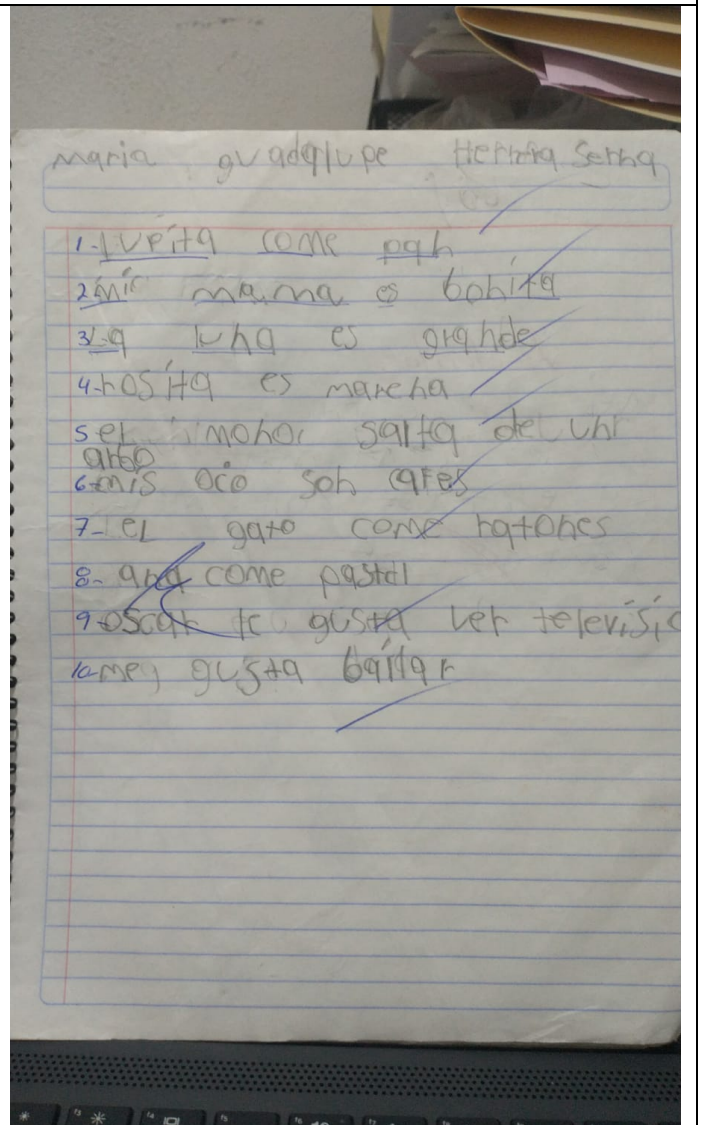 maria guadalupe Herrera Serna
1-Lupita come pan
2 mic mama es bonita
3 La luna es grande
4-rosita es marcha
5 el mono salta de un
arbo
6-mis oco son cafes
7-el gato come ratones
8- ana come pastel
9-oscar le gusta ver televisio
10-me gusta bailar